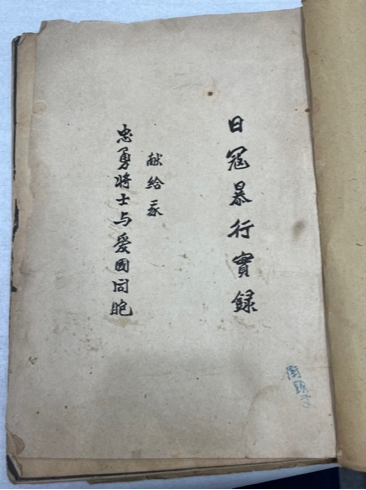 日寇暴行實録
献给我
忠勇将士与爱国同胞